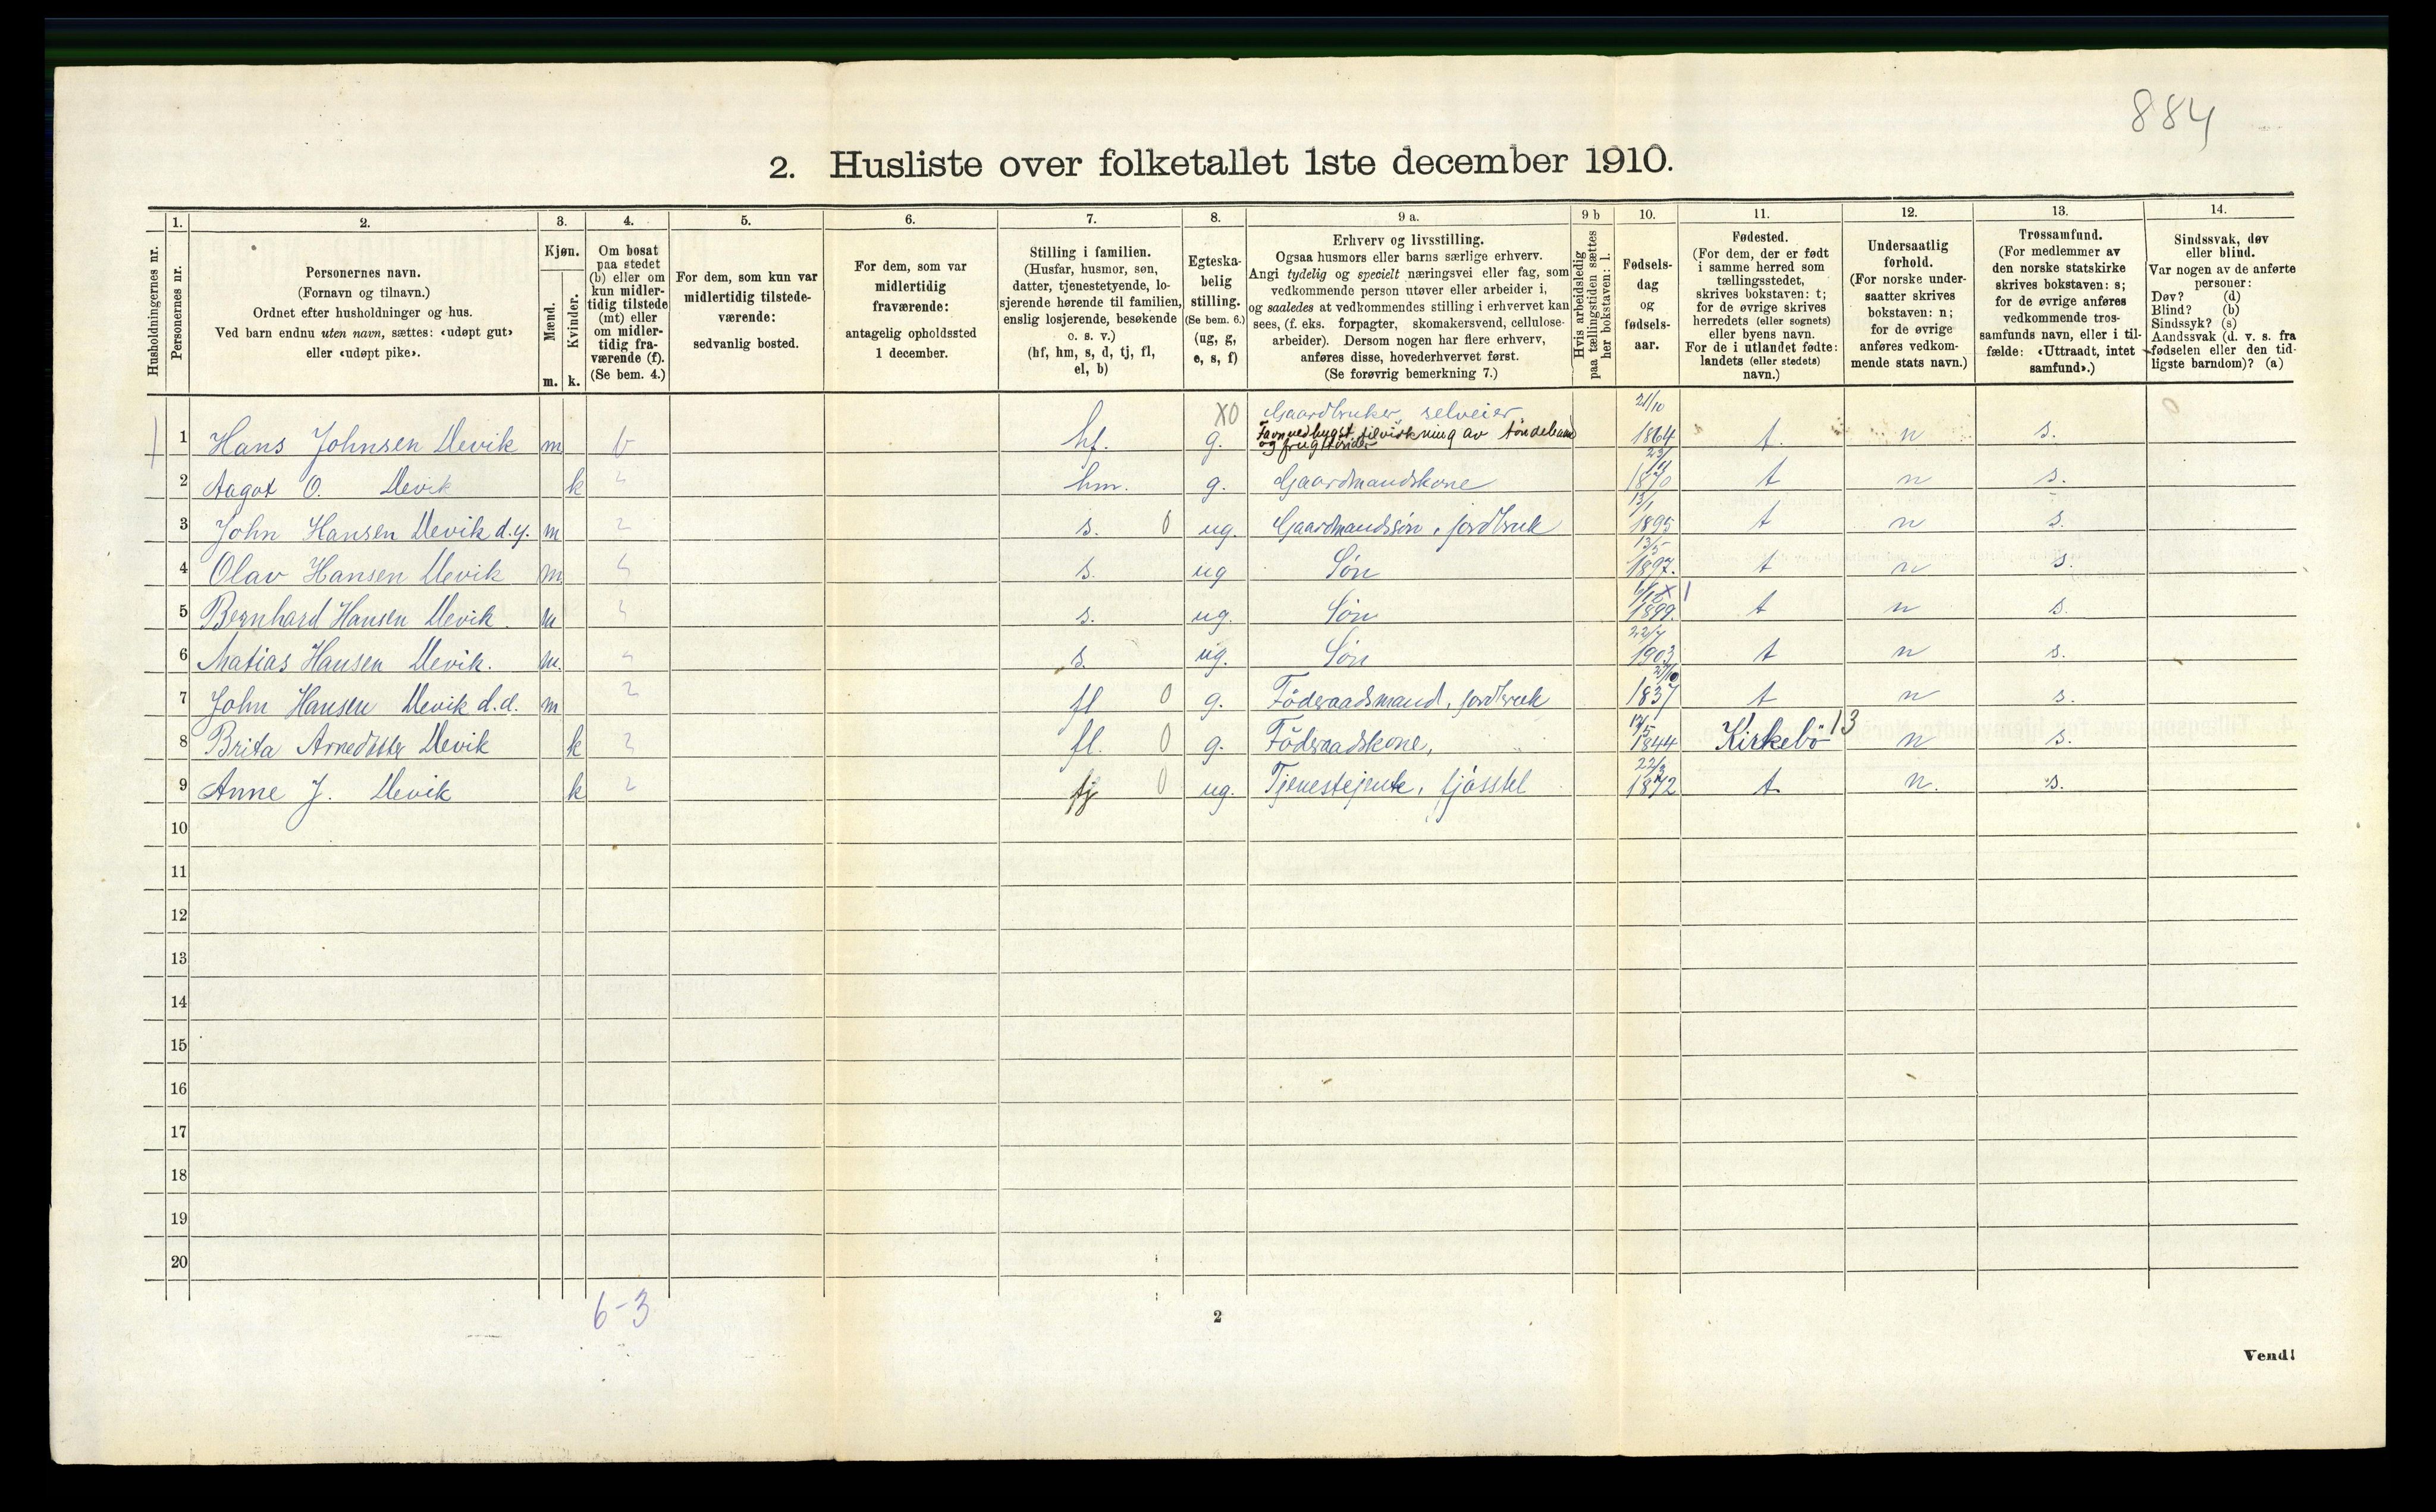 884
2. Husliste over folketallet 1ste december 1910.
Husholdningernes nr.
1.
Personernes nr.
2.
Personernes navn.
(Fornavn og tilnavn.)
Ordnet efter husholdninger og hus.
Ved barn endnu uten navn, sættes: «udøpt gut»
eller «udøpt pike».
3.
Kjøn.
Mænd.
Kvinder.
m. k.
4.
Om bosat
paa stedet
(b) eller om
kun midler-
tidig tilstede
(mt) eller
om midler-
tidig fra-
værende (f).
(Se bem. 4.)
5.
For dem, som kun var
midlertidig tilstede-
værende:
sedvanlig bosted.
6.
For dem, som var
midlertidig
fraværende:
antagelig opholdssted
1 december.
7.
Stilling i familien.
(Husfar, husmor, søn,
datter, tjenestetyende, lo-
sjerende hørende til familien,
enslig losjerende, besøkende
o. s. v.)
(hf, hm, s, d, tj, fl,
el, b)
8.
Egteska-
belig
stilling.
(Se bem. 6.)
(ug, g,
e, s, f)
9 a.
Erhverv og livsstilling.
Ogsaa husmors eller barns særlige erhverv.
Angi tydelig og specielt næringsvei eller fag, som
vedkommende person utøver eller arbeider i,
og saaledes at vedkommendes stilling i erhvervet kan
sees, (f. eks. forpagter, skomakersvend, cellulose-
arbeider). Dersom nogen har flere erhverv,
anføres disse, hovederhvervet først.
(Se forøvrig bemerkning 7.)
9 b
Hvis arbeidsledig
paa tællingstiden sættes
her bokstaven: l.
10.
Fødsels-
dag
og
fødsels-
aar.
11.
Fødested.
(For dem, der er født
i samme herred som
tællingsstedet,
skrives bokstaven: t;
for de øvrige skrives
herredets (eller sognets)
eller byens navn.
For de i utlandet fødte:
landets (eller stedets)
navn.)
12.
Undersaatlig
forhold.
(For norske under-
saatter skrives
bokstaven: n;
for de øvrige
anføres vedkom-
mende stats navn.)
13.
Trossamfund.
(For medlemmer av
den norske statskirke
skrives bokstaven: s;
for de øvrige anføres
vedkommende tros-
samfunds navn, eller i til-
fælde: «Uttraadt, intet
samfund».)
14.
Sindssvak, døv
eller blind.
Var nogen av de anførte
personer:
Døv? (d)
Blind? (b)
Sindssyk? (s)
Aandssvak (d. v. s. fra
fødselen eller den tid-
ligste barndom)? (a)
X0 Gaardbruker, selveier 21/10 0
1 Hans Johnsen Devik m b hf. g. Favnvedhugst, tilvirkning av tøndebaand 1864 t. n s.
2 Aagot O. Devik k hm. g. Gaardmandskone 1870 t n s.
3 John Hansen Devik d.y. m s. 0 ug. Gaardmandssøn, jordbruk 13/1 1895 t n s.
4 Olav Hansen Devik m s. ug Søn 13/5 1897. t n s.
5 Bernhard Hansen Devik m s. ug. Søn 1899. t n s.
6 Matias Hansen Devik. m. s. ug. Søn 1903 t n s.
7 John Hansen Devik d.d. m fl 0 g. Föderaadsmand, jordbruk 1837 t n s.
8 Brita Arnedatter Devik k fl. 0 g. Föderaadskone, 1844 Kirkebö 13 n s.
9 Anne J. Devik k tj 0 ug. Tjenestejente, fjösstel 1872 t n. s.
10
11
12
13
14
15
16
17
18
19
20
6-3
2
Vend!